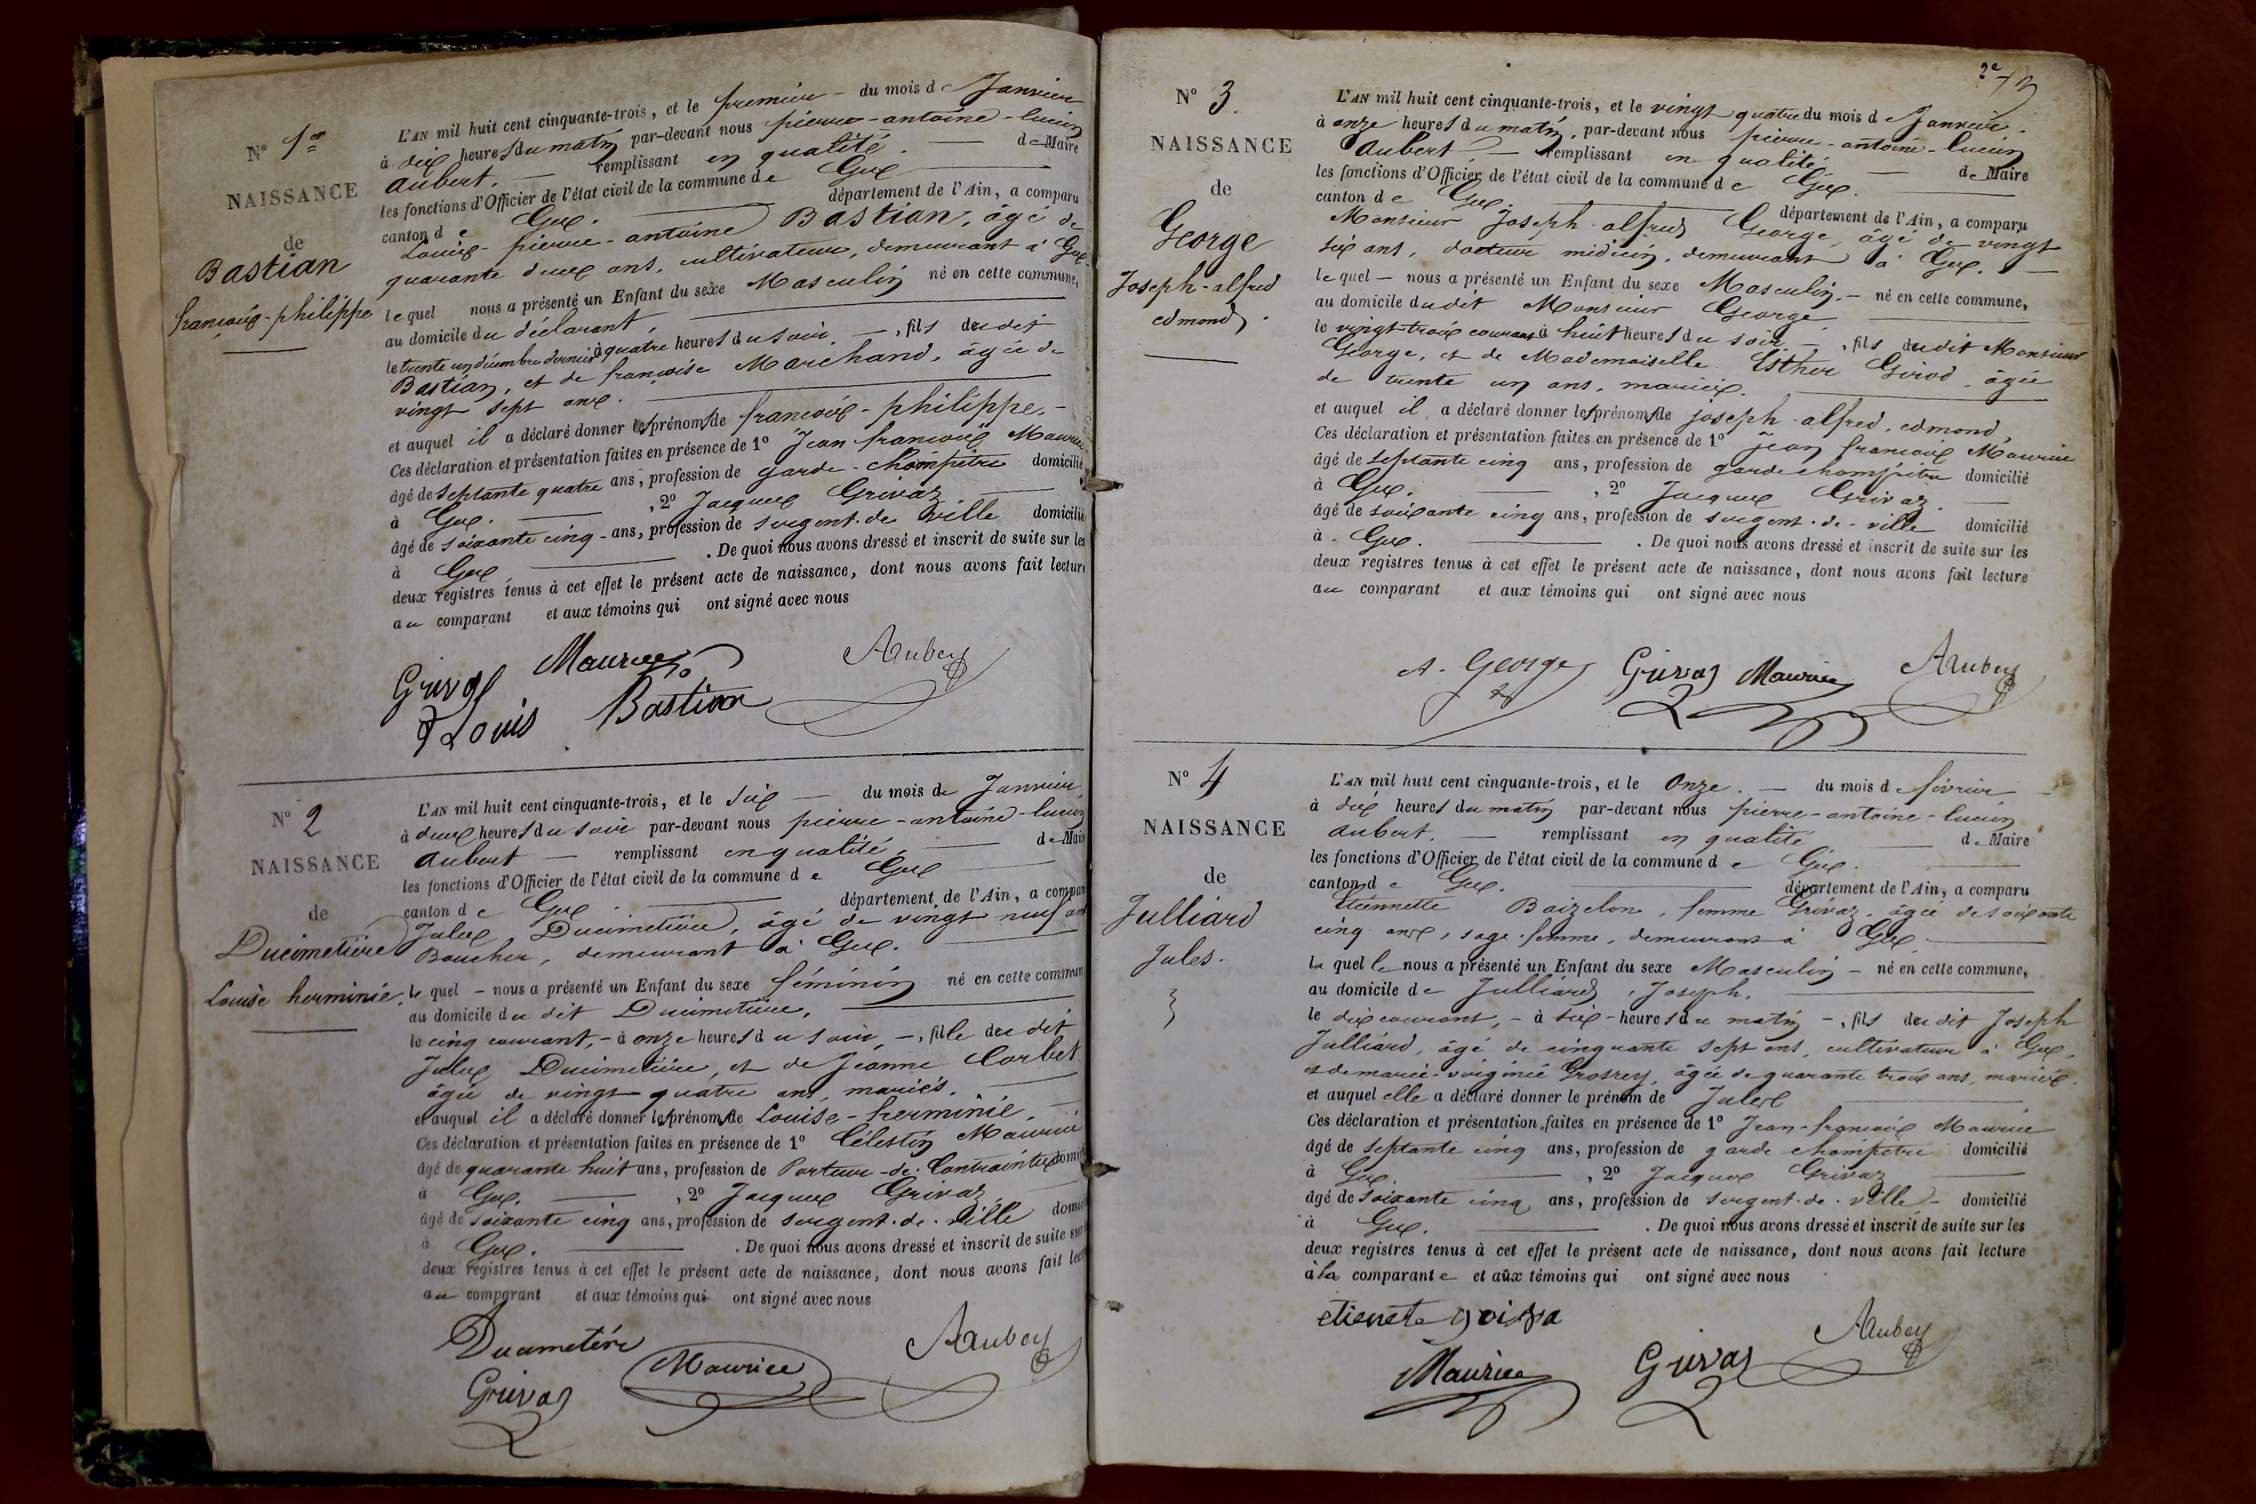 N° 1er
NAISSANCE
de
Bastian
françois-philippe
L'AN mil huit cent cinquante-trois, et le premier du mois de Janvier
à dix heures du matin par-devant nous pierre-antoine-lucien
Aubert, remplissant en qualité de Maire
les fonctions d'Officier de l'état civil de la commune de Gex
canton de Gex. département de l'Ain, a comparu
Louis-pierre-antoine Bastian, âgé de
quarante deux ans, cultivateur, demeurant à Gex
lequel nous a présenté un Enfant du sexe Masculin né en cette commune,
au domicile du déclarant,
le trente un décembre dernier à quatre heures du soir, fils du dit
Bastian, et de françoise Marchand, âgée de
vingt sept ans.
et auquel il a déclaré donner les prénoms de françois-philippe.
Ces déclaration et présentation faites en présence de 1° Jean françois Maurice
âgé de septante quatre ans, profession de garde-champêtre domicilié
à Gex. , 2° Jacques Grivaz
âgé de soixante cinq ans, profession de sergent-de ville domicilié
à Gex . De quoi nous avons dressé et inscrit de suite sur les
deux registres tenus à cet effet le présent acte de naissance, dont nous avons fait lecture
au comparant et aux témoins qui ont signé avec nous
Grivaz Maurice Aubert
Louis Bastian
N° 2
NAISSANCE
de
Ducimetière
Louise herminie.
L'AN mil huit cent cinquante-trois, et le six du mois de Janvier,
à deux heures du soir par-devant nous pierre-antoine-lucien
Aubert remplissant en qualité de Maire
les fonctions d'Officier de l'état civil de la commune de Gex
canton de Gex . département de l'Ain, a comparu
Jules Ducimetière, âgé de vingt neuf ans
Boucher, demeurant à Gex.
lequel nous a présenté un Enfant du sexe féminin né en cette commune
au domicile du dit Ducimetière,
le cinq courant, à onze heures du soir, fille du dit
Jules Ducimetière, et de Jeanne Corbet
âgée de vingt quatre ans, mariés.
et auquel il a déclaré donner les prénoms de Louise-herminie.
Ces déclaration et présentation faites en présence de 1° Célestin Maurice
âgé de quarante huit ans, profession de Porteur-de-Contraintes domicilié
à Gex. , 2° Jacques Grivaz
âgé de soixante cinq ans, profession de sergent-de-ville domicilié
à Gex. . De quoi nous avons dressé et inscrit de suite sur
deux registres tenus à cet effet le présent acte de naissance, dont nous avons fait lecture
au comparant et aux témoins qui ont signé avec nous
Ducimetière Aubert
Grivaz Maurice
N° 3.
NAISSANCE
de
George
Joseph-alfred
edmond.
L'AN mil huit cent cinquante-trois, et le vingt quatre du mois de Janvier.
à onze heures du matin, par-devant nous pierre-antoine-lucien
Aubert, remplissant en qualité de Maire
les fonctions d'Officier de l'état civil de la commune de Gex.
canton de Gex. département de l'Ain, a comparu
Monsieur Joseph alfred George, âgé de vingt
six ans, docteur médecin, demeurant à Gex.
lequel nous a présenté un Enfant du sexe Masculin. né en cette commune,
au domicile du dit Monsieur George.
le vingt-trois courant à huit heures du soir, fils du dit Monsieur
George, et de Mademoiselle Esther Girod, âgée
de trente un ans, mariés.
et auquel il a déclaré donner les prénoms de joseph-alfred, edmond,
Ces déclaration et présentation faites en présence de 1° Jean françois Maurice
âgé de septante cinq ans, profession de garde champêtre domicilié
à Gex. , 2° Jacques Grivaz.
âgé de soixante cinq ans, profession de sergent-de-ville domicilié
à Gex. . De quoi nous avons dressé et inscrit de suite sur les
deux registres tenus à cet effet le présent acte de naissance, dont nous avons fait lecture
au comparant et aux témoins qui ont signé avec nous
A. George Grivaz Maurice Aubert
N° 4
NAISSANCE
de
Julliard
Jules.
L'AN mil huit cent cinquante-trois, et le Onze. du mois de février
à dix heures du matin par-devant nous pierre-antoine-lucien
Aubert. remplissant en qualité de Maire
les fonctions d'Officier de l'état civil de la commune de Gex.
canton de Gex. département de l'Ain, a comparu
Etiennette Baizelon, femme Grivaz, âgée de soixante
cinq ans, sage-femme, demeurant à Gex
laquelle nous a présenté un Enfant du sexe Masculin né en cette commune,
au domicile de Julliard, Joseph,
le dix courant, à six heures du matin, fils du dit Joseph
Julliard, âgé de cinquante sept ans, cultivateur à Gex,
et de marie-virginie Grosrey, âgée de quarante trois ans, mariés.
et auquel elle a déclaré donner le prénom de Jules
Ces déclaration et présentation faites en présence de 1° Jean-françois Maurice
âgé de septante cinq ans, profession de garde champêtre domicilié
à Gex. , 2° Jacques Grivaz
âgé de soixante cinq ans, profession de sergent-de-ville domicilié
à Gex. . De quoi nous avons dressé et inscrit de suite sur les
deux registres tenus à cet effet le présent acte de naissance, dont nous avons fait lecture
à la comparante et aux témoins qui ont signé avec nous
Aubert
Maurice Grivaz